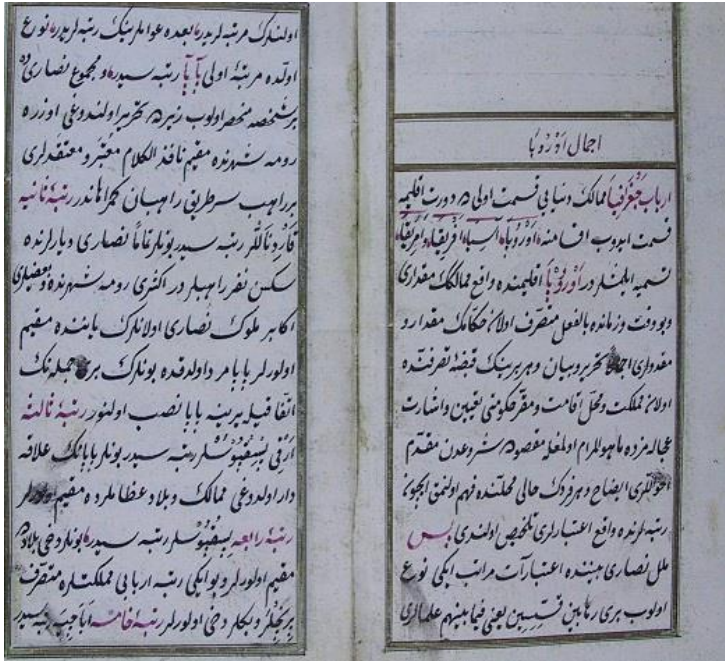 اجمال اَوْرُوپا
ارباب جغرافيا ممالك دنيايى قسمت اولى ده دورت اقليمه
قسمت ايدوب اقسامنه اَوْرُوپا و آسيا و افريقا و امريقا
تسميه ايلمشلر در اَوْرُوپا اقليمنده واقع ممالكك مقدارى
و بو وقت و زمانده بالفعل متصرف اولان حكامك مقدار و
مقدورى اجمالا تحرير و بيان و هر برينك قبضۀ تصرفنده
اولان مملكت و محل اقامت و مقر حكومتى تعيين و اشارت
عجاله مزده ماهو المرام اولمغله مقصوده شروعدن مقدم
احوللرى ايضاح و هر فردك حالى محلنده فهم اولنمق ايجون
رتبه لرنده واقع اعتبارلرى تلخيص اولندى پس
ملل نصارى بيننده اعتبارات مراتب ايكى نوع
اولوب برى رهابين قسيسين يعنى فيما بينهم علمالرى
اولنلرك مرتبه لريدر بعده عواملرينك رتبه لريدر نوع
اولده مرتبۀ اولى پاپا رتبه سيدر و مجموع نصارى ده
بر شخصه منحصر اولوب زيرده تحرير اولندوغى اوزره
رومه شهرنده مقيم نافذ الكلام معتبر و معتقدلرى
بر راهب سر طريق راهبان كمراهاندر رتبۀ ثانيه
قاردناللر رتبه سيدر بونلر تماما نصارى ديارلرنده
سكسن نفر راهبلر در اكثرى رومه شهرنده و بعضيلرى
اكابر ملوك نصارى اولانلرك يانينده مقيم
اولورلر پاپا مرد اولدقده بونلرك برى جمله نك
اتفاقيله يرينه پاپا نصب اولنور رتبۀ ثالثه
ارقى پسقپوسلر رتبه سيدر بونلر پاپانك علاقه
دار اولدوغى ممالك و بلاد عظامارده مقيم اولورلر
رتبۀ رابعه پسقپوسلر رتبه سيدر بونلر دخى بلادده
مقيم اولورلر و بو ايكى رتبه اربابى مملكتلره متصرف
پرنچلر و بكلر دخى اولورلر رتبۀ خامسه رتبه سيدر